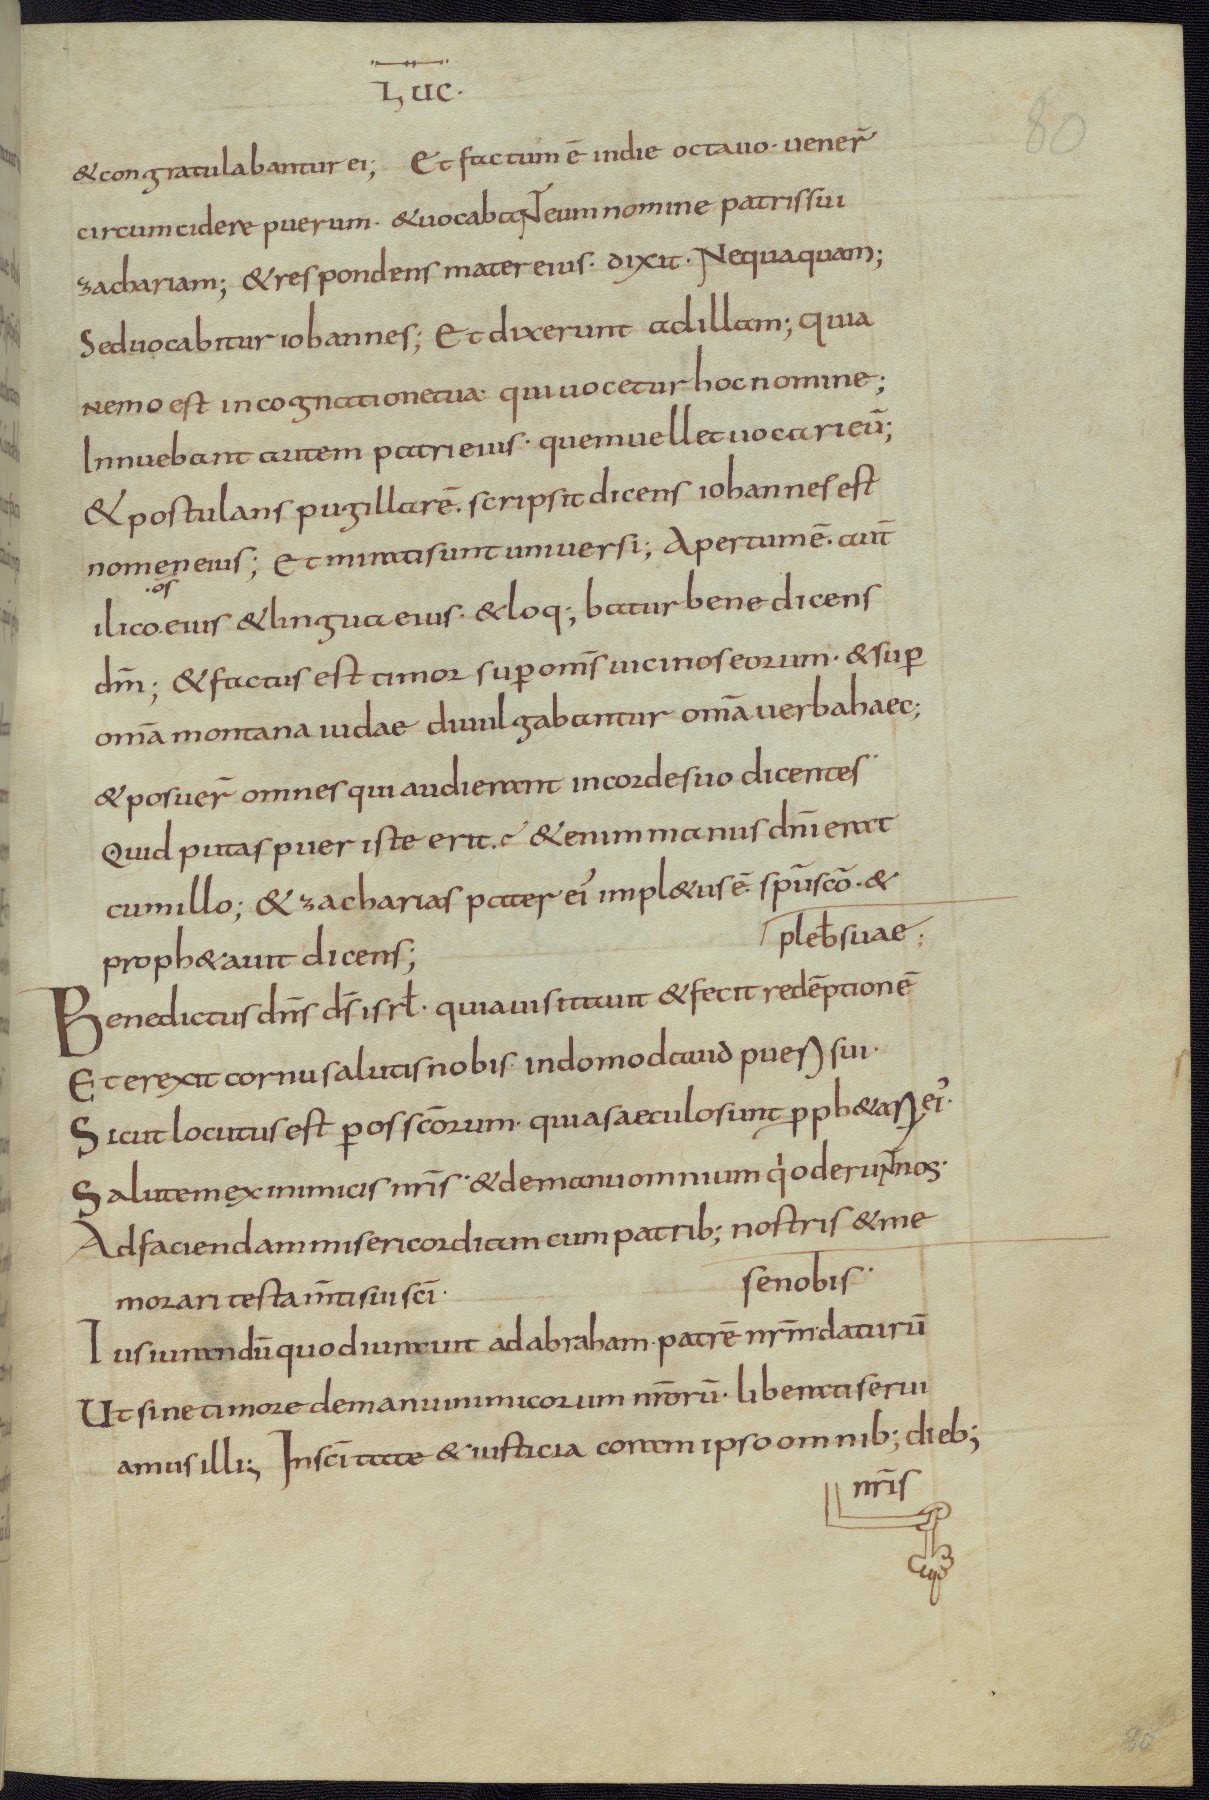 Luc·
80
&congratulabantur ei; Et factum ē indie octauo· uener̄
circumcidere puerum· &uocabaN̄ eum nomine patris sui
zachariam; &respondens mater eius· dixit· Nequaquam;
Sed uocabitur iohannes; Et dixerunt adillam; quia
nemo est incognatione tua· qui uocetur hoc nomine;
Innuebant autem patri eius· quem uellet uocari eū;
&postulans pugillarē· scripsit dicens iohannes est
nomen eius; Et mirati sunt uniuersi; Apertum ē· aut̄
·os
ilico·eius &lingua eius· &loq; batur benedicens
dn̄m; &factus est timor sup om̄s uicinos eorum· &sup
om̄a montana iudae diuulgabantur om̄a uerba haec;
&posuer̄ omnes qui audierant incorde suo dicentes·
Quid putas puer iste erit·? &enim manus dn̄i erat
cum illo; &zacharias pater ei' impl&us ē· sp̄u sc̄o· &
proph&auit dicens; pleb̄ suae;
Benedictus dn̄s d̄s isrl̄· quia uisitauit &fecit redēptionē
Et erexit cornu salutis nobis· indomo dauid pueri sui·
Sicut locutus est p os sc̄orum· qui asaeculo sunt pph&aꝝ ei'·
Salutem ex inimicis nr̄is· &demanu omnium qi oderuN̄ nos·
Adfaciendam misericordiam cum patrib; nostris &me
morari testam̄ti sui sc̄i· se nobis·
Iusiurandū quod iurauit ad abraham· patrē nr̄m· daturū
Ut sine timore demanu inimicorum nr̄orū· liberati serui
amus illi; Insc̄itate &iusticia coram ipso omnib; dieb;
nr̄is
80